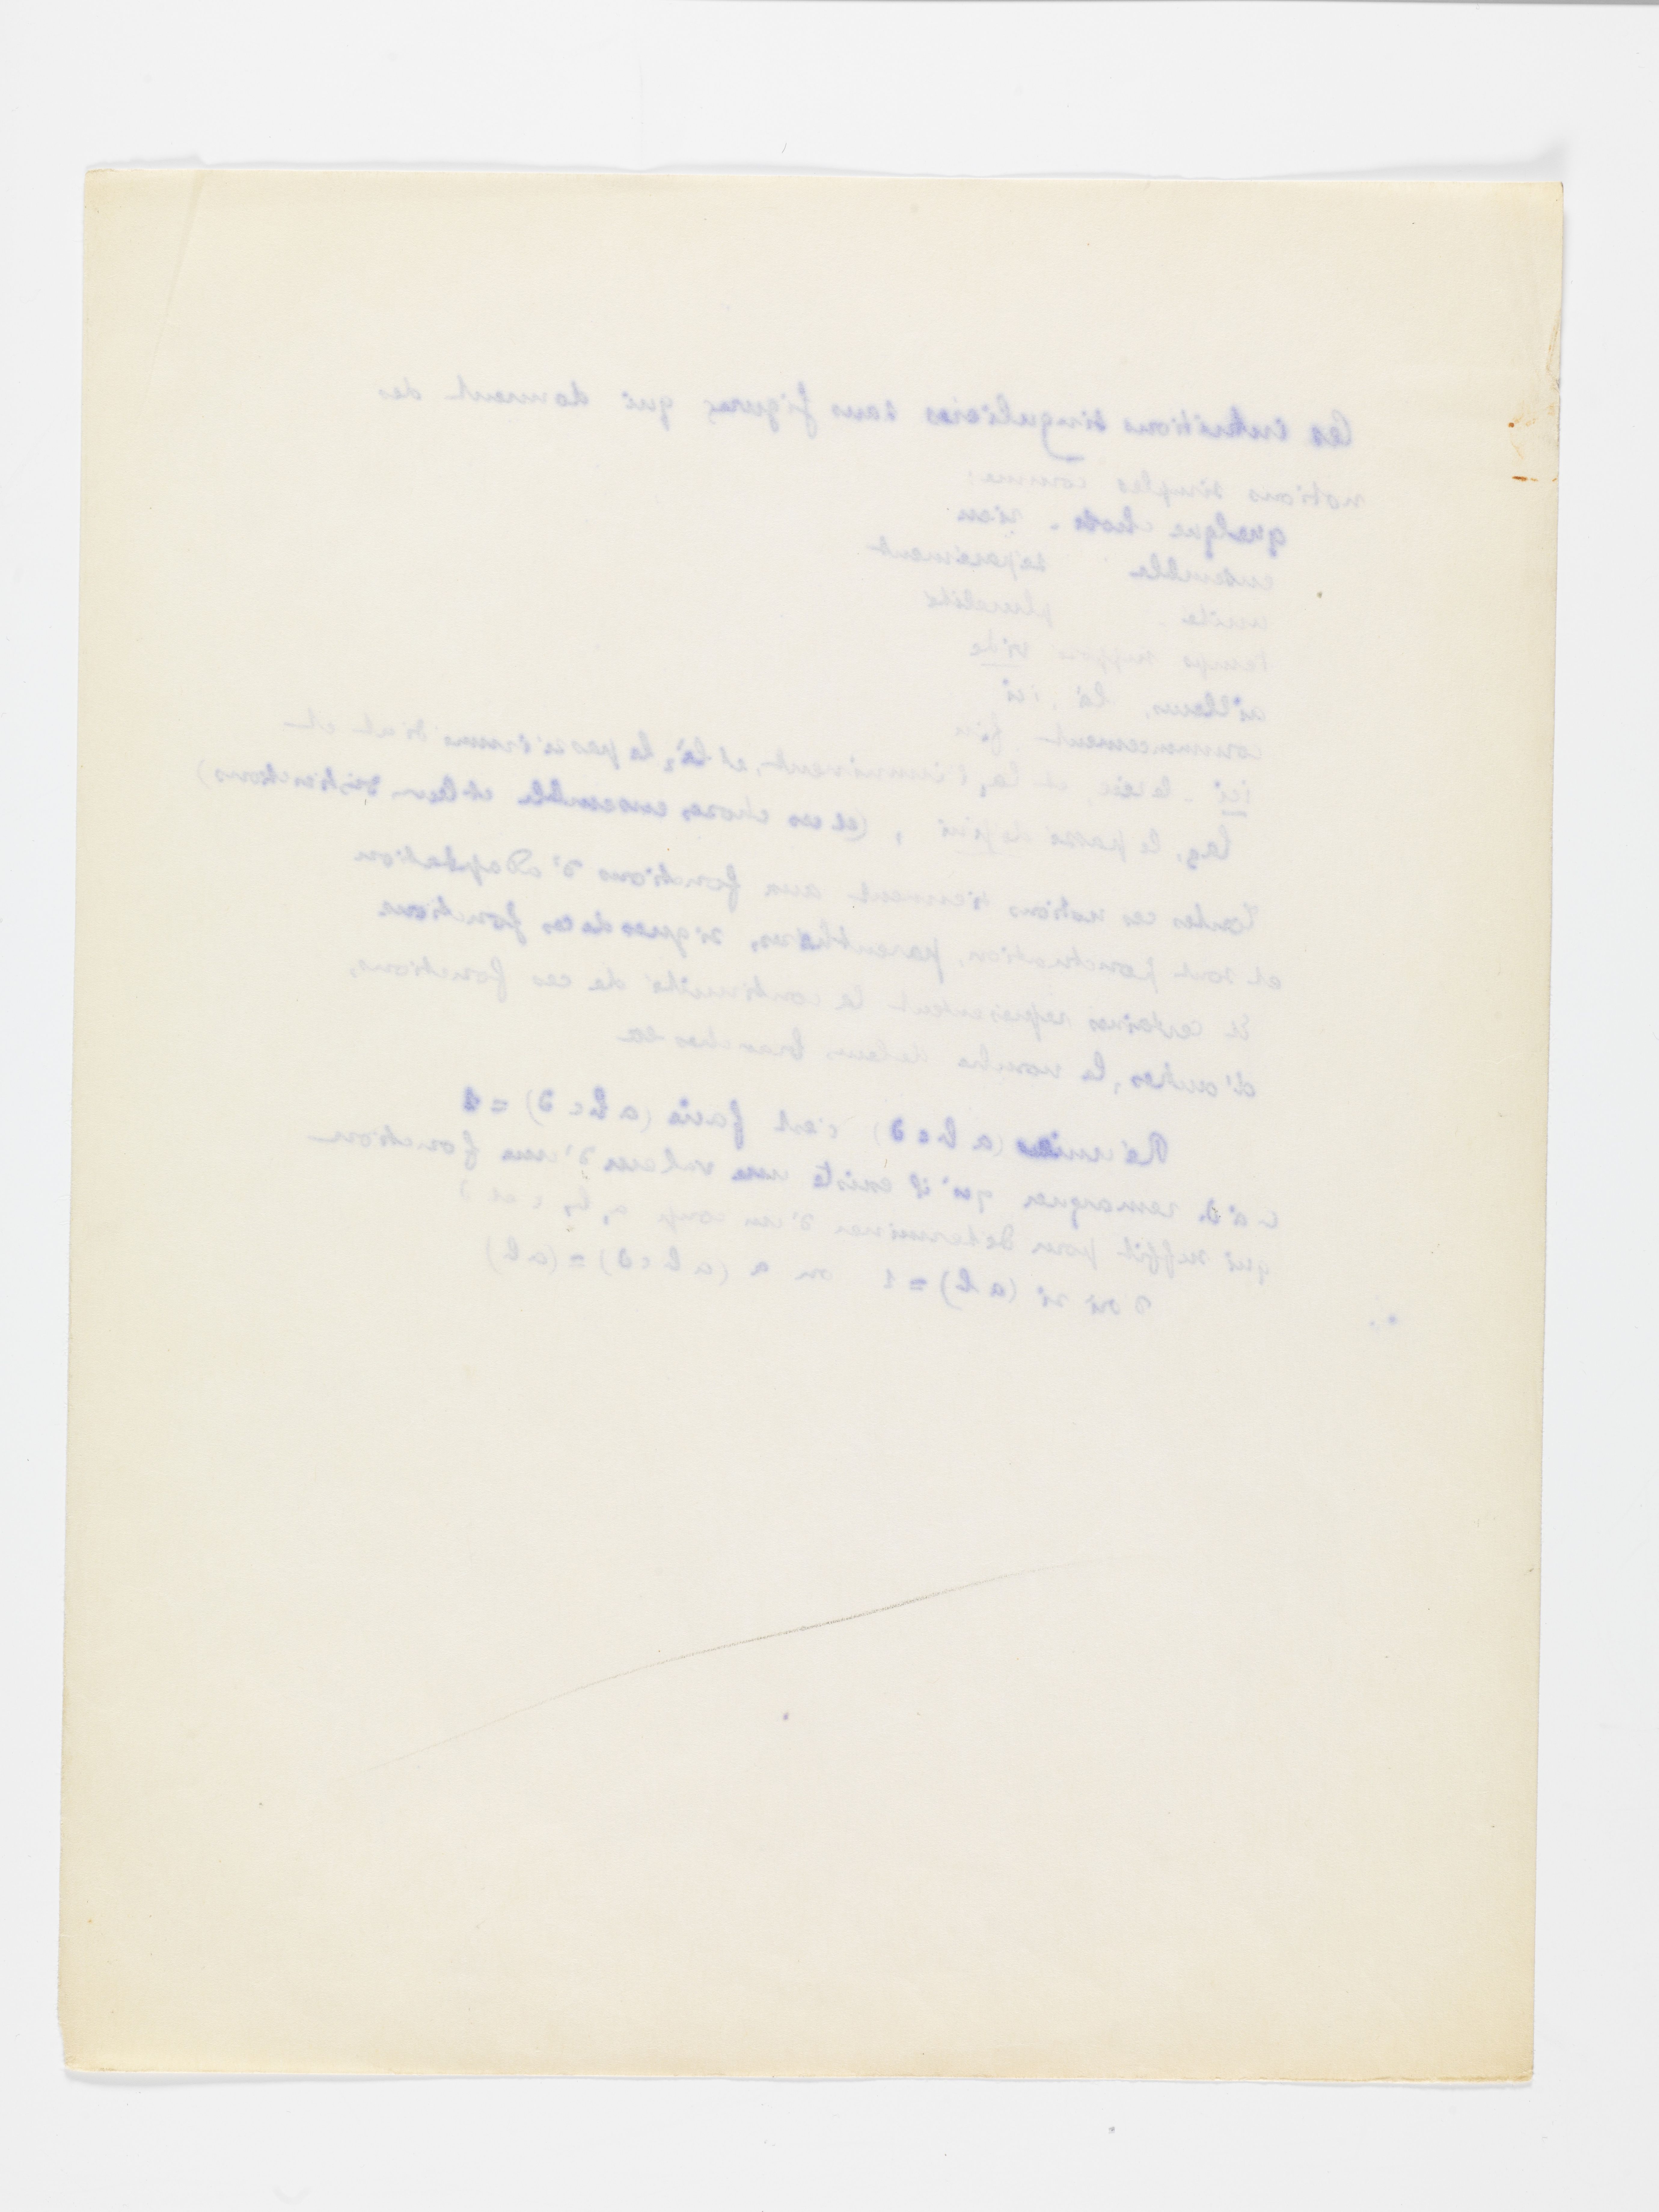 Les intuitions singulières sans figures qui donnent des
notions simples comme :
quelque chose - rien
ensemble séparément
unité - pluralité
temps support vide
ailleurs, là, ici
commencement fin
ici - et là, l'imminent, et là₂ le passé et
là₃, le passé défini, (et ces choses ensemble et leurs distinctions)
Toutes ces notions tiennent aux fonctions d'adaptation
et sont ponctuation, parenthèses, signes de ces fonctions
Et certaines représentent la continuité de ces fonctions,
d'autres, le nombre de leurs branches
Réunir (a b c d) c'est faire (a b c d) = 1
c à d. remarquer qu'il existe une valeur d'une fonction
qui suffit pour déterminer d'un coup a, b, c et d
si (a b) = 1 on a (a b c d) = (a b)